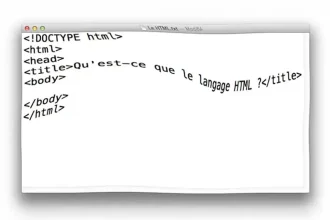 <!DOCTYPE html>
<html>
<head>
<title>Qu'est-ce que le langage HTML ?</title>
<body>
</body>
</html>